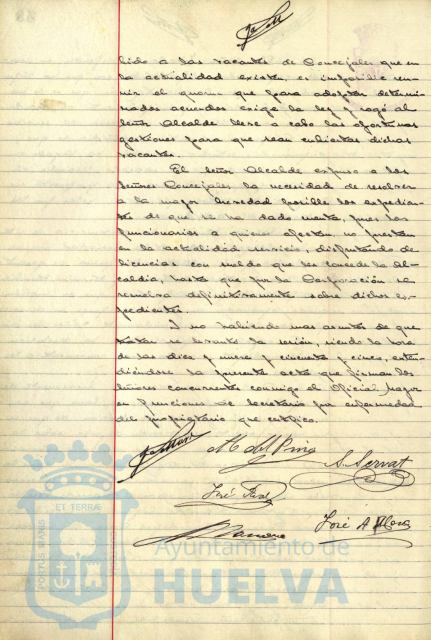 bido a las vacantes de Concejales que en
la actualidad existen, es imposible reu-
nir el quorum que para adoptar determi-
nados acuerdos exige la ley y rogó al
Señor Alcalde lleve a cabo las oportunas
gestiones para que sean cubiertas dichas
vacantes.
El Señor Alcalde expuso a los
Señores Concejales la necesidad de resolver
a la mayor brevedad posible los expedien-
tes de que se ha dado cuenta, pues los
funcionarios a quienes afectan, no prestan
en la actualidad servicio, disfrutando de
licencias con sueldo que les concede la Al-
caldia, hasta que por la Corporación se
resuelva definitivamente sobre dichos ex-
pedientes.
Y no habiendo mas asuntos de que
tratar se levantó la sesión, siendo la hora
de las diez y nueve y cincuenta y cinco, exten-
diéndose la presente acta que firman los
Señores concurrentes conmigo el Oficial Mayor
en funciones de Secretario por enfermedad
del propietario que certifico.
M. del Pino
S. Servat
José
José A.
PORTUS MARIS ET TERRÆ
Ayuntamiento de
HUELVA